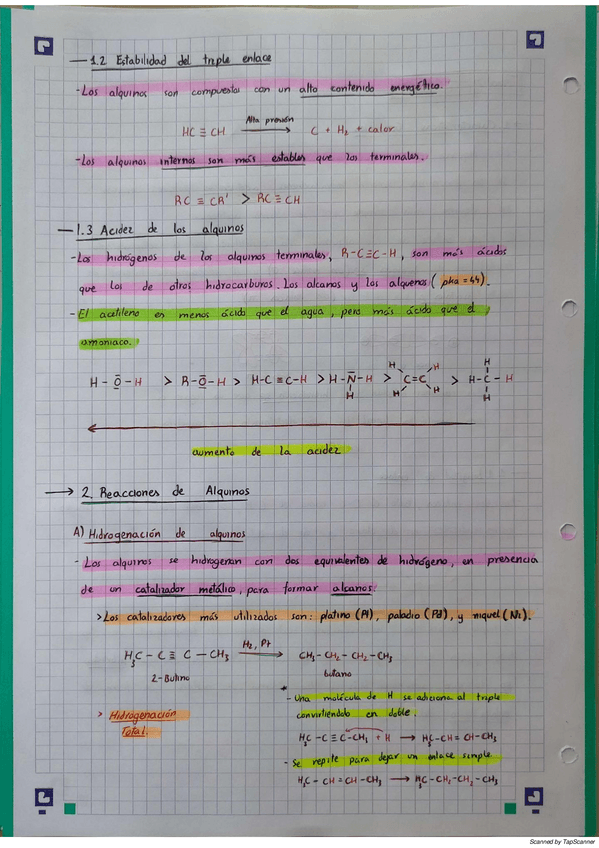 — 1.2 Estabilidad del triple enlace
- Los alquinos son compuestos con un alto contenido energético.
Alta presión
HC ≡ CH ⟶ C + H₂ + calor
- Los alquinos internos son más estables que los terminales.
RC ≡ CR' > RC ≡ CH
— 1.3 Acidez de los alquinos
- Los hidrógenos de los alquinos terminales, R-C≡C-H, son más ácidos
que los de otros hidrocarburos. Los alcanos y los alquenos (pka = 44).
- El acetileno en menos ácido que el agua, pero más ácido que el
amoniaco.
H - O - H > R-O-H > H-C ≡ C-H > H-N-H > C=C > H-C-H
aumento de la acidez
→ 2. Reacciones de Alquinos
A) Hidrogenación de alquinos
- Los alquinos se hidrogenan con dos equivalentes de hidrógeno, en presencia
de un catalizador metálico, para formar alcanos:
> Los catalizadores más utilizados son: platino (Pl), paladio (Pd), y níquel (Ni).
H₂, Pt
H₃C - C ≡ C - CH₃ ⟶ CH₃ - CH₂ - CH₂ - CH₃
2-Butino butano
* - Una molécula de H se adiciona al triple
convirtiéndolo en doble.
> Hidrogenación
Total.
H₃C - C ≡ C-CH₃ + H → H₃C - CH = CH-CH₃
- Se repite para dejar un enlace simple
H₃C - CH = CH - CH₃ → H₃C - CH₂ - CH₂ - CH₃
Scanned by TapScanner